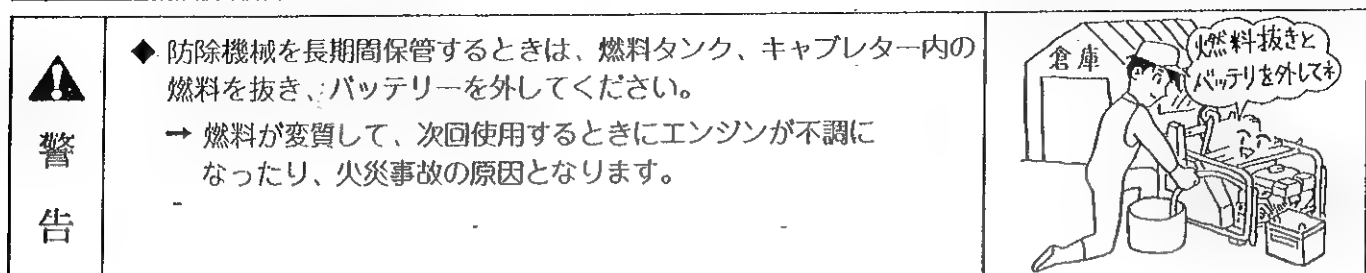 警告
◆ 防除機械を長期間保管するときは、燃料タンク、キャブレター内の
燃料を抜き、バッテリーを外してください。
→ 燃料が変質して、次回使用するときにエンジンが不調に
なったり、火災事故の原因となります。
倉庫
燃料抜きと
バッテリを外してネ